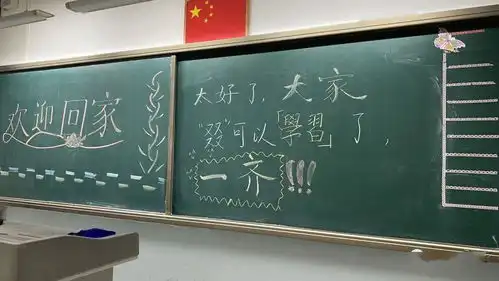 欢迎回家
太好了，大家
“叕”可以「學習」了，
一齐!!!